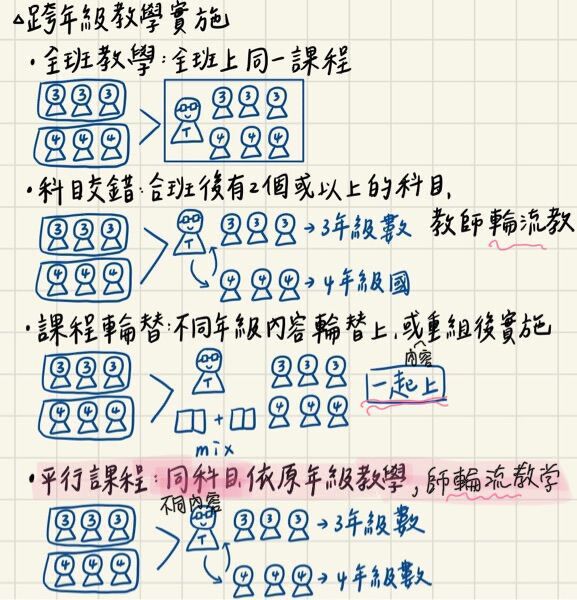 △跨年級教學實施
・全班教學:全班上同一課程
3 3 3
4 4 4
T
3 3 3
4 4 4
・科目交錯:合班後有2個或以上的科目,
教師輪流教
3 3 3
4 4 4
T
3 3 3 → 3年級數
4 4 4 → 4年級國
・課程輪替:不同年級內容輪替上,或重組後實施
內容
3 3 3
4 4 4
T
+
mix
3 3 3
4 4 4
一起上
・平行課程:同科目,依原年級教學,師輪流教学
不同內容
3 3 3
4 4 4
T
3 3 3 → 3年級數
4 4 4 → 4年級數